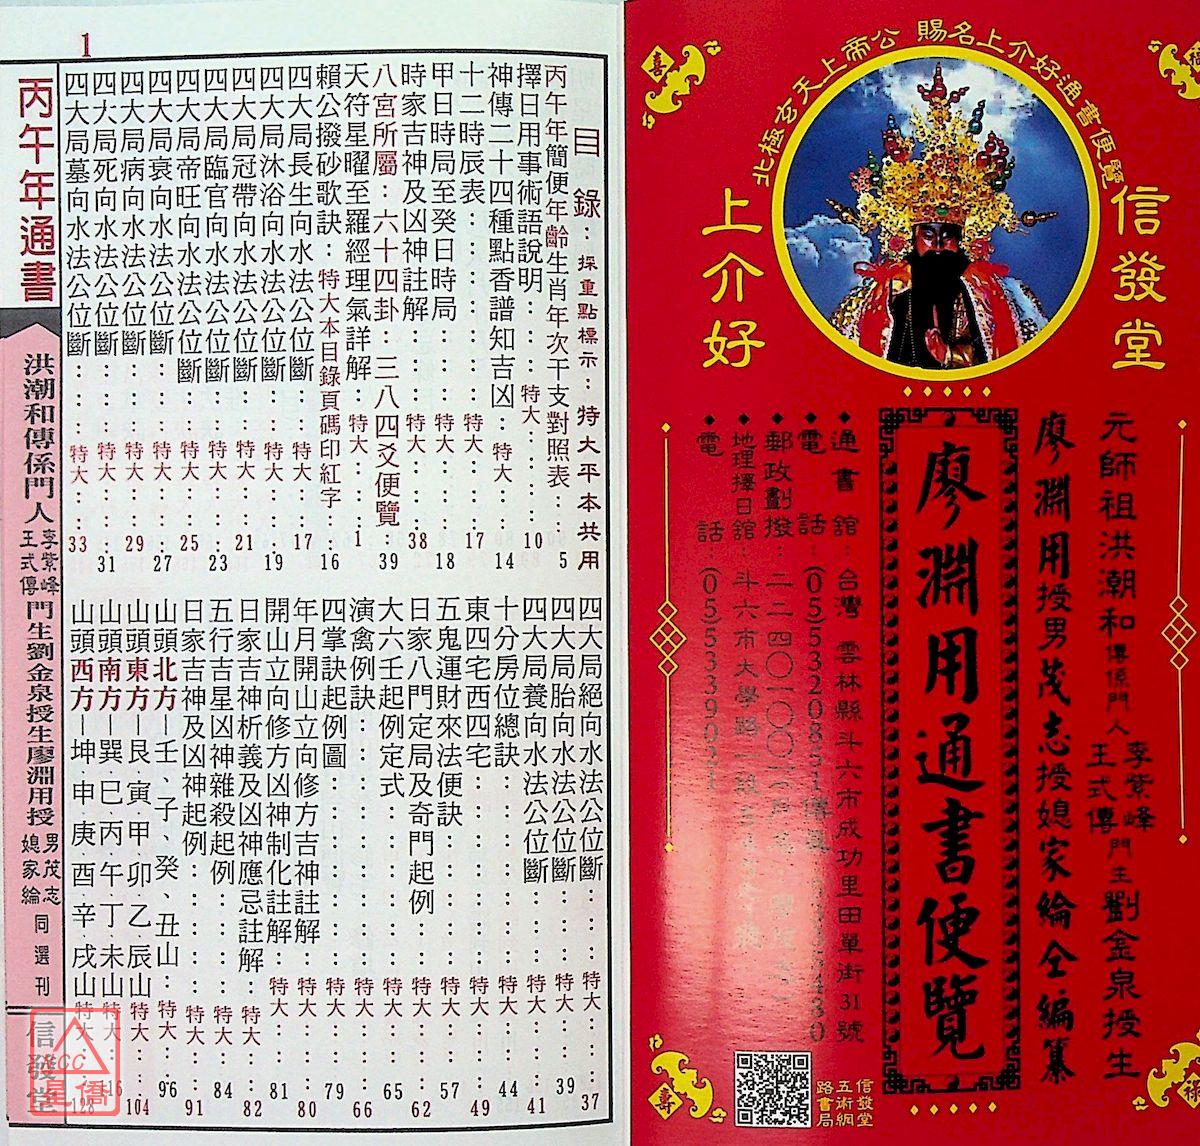 北極玄天上帝公 賜名上介好通書便覽
信發堂
上介好
元師祖洪潮和傳係門人李紫峰王式傳門生劉金泉授生
廖淵用授男茂志授媳家綸仝編纂
廖淵用通書便覽
◆通書館：台灣 雲林縣斗六市成功里田單街31號
◆電話：(05)5320851
◆郵政劃撥：
◆地理擇日館：斗六市大學路
◆電話：(05)5339021
信發堂
五術網
路書局
喜
壽
1
目錄：採重點標示：特大平本共用
丙午年簡便年齡生肖年次干支對照表：5
擇日用事術語說明：特大：10
神傳二十四種點香譜知吉凶：特大：14
十二時辰表：特大：17
甲日時局至癸日時局：特大：18
時家吉神及凶神註解：特大：38
八宮所屬：六十四卦：三八四爻便覽：39
天符星曜至羅經理氣詳解：特大：1
賴公撥砂歌訣：特大本目錄頁碼印紅字：16
四大局長生向水法公位斷：特大：17
四大局沐浴向水法公位斷：特大：19
四大局冠帶向水法公位斷：特大：21
四大局臨官向水法公位斷：特大：23
四大局帝旺向水法公位斷：特大：25
四大局衰向水法公位斷：特大：27
四大局病向水法公位斷：特大：29
四大局死向水法公位斷：特大：31
四大局墓向水法公位斷：特大：33
四大局絕向水法公位斷：特大：37
四大局胎向水法公位斷：特大：39
四大局養向水法公位斷：特大：41
十分房位總訣：特大：44
東四宅西四宅：特大：49
五鬼運財來法便訣：特大：57
日家八門定局及奇門起例：特大：62
大六壬起例定式：特大：65
演禽例訣：特大：66
四掌訣起例圖：特大：79
年月開山立向修方吉神註解：特大：80
開山立向修方凶神制化註解：特大：81
日家吉神析義及凶神應忌註解：特大：82
五行吉星凶神雜殺起例：特大：84
日家吉神及凶神起例：特大：91
山頭北方－壬、子、癸、丑山：特大：96
山頭東方－艮寅甲卯乙辰山：特大：104
山頭南方－巽巳丙午丁未山：特大：116
山頭西方－坤申庚酉辛戌山：特大：128
丙午年通書
洪潮和傳係門人李紫峰王式傳門生劉金泉授生廖淵用授男茂志媳家綸同選刊
信發堂
CC
星僑